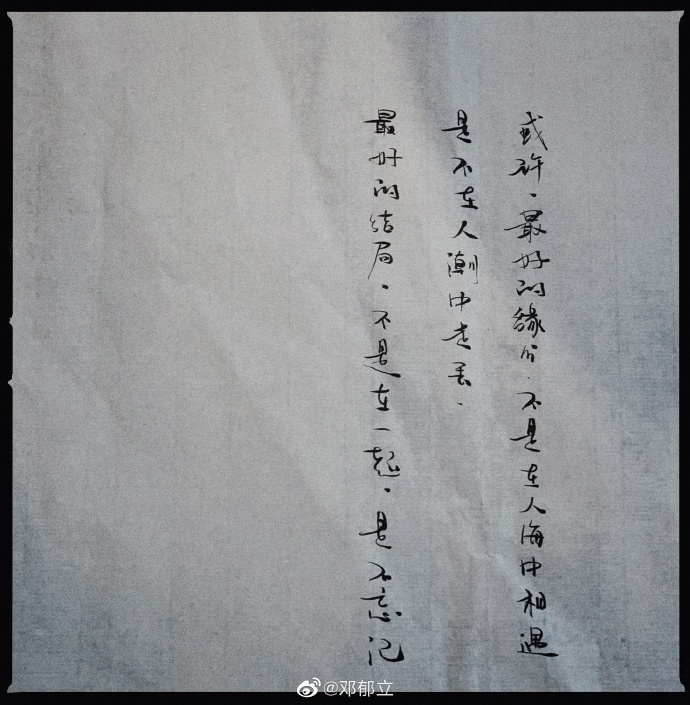 或许，最好的緣分，不是在人海中相遇
是不在人潮中走丟，
最好的结局，不是在一起，是不忘记
@邓郁立